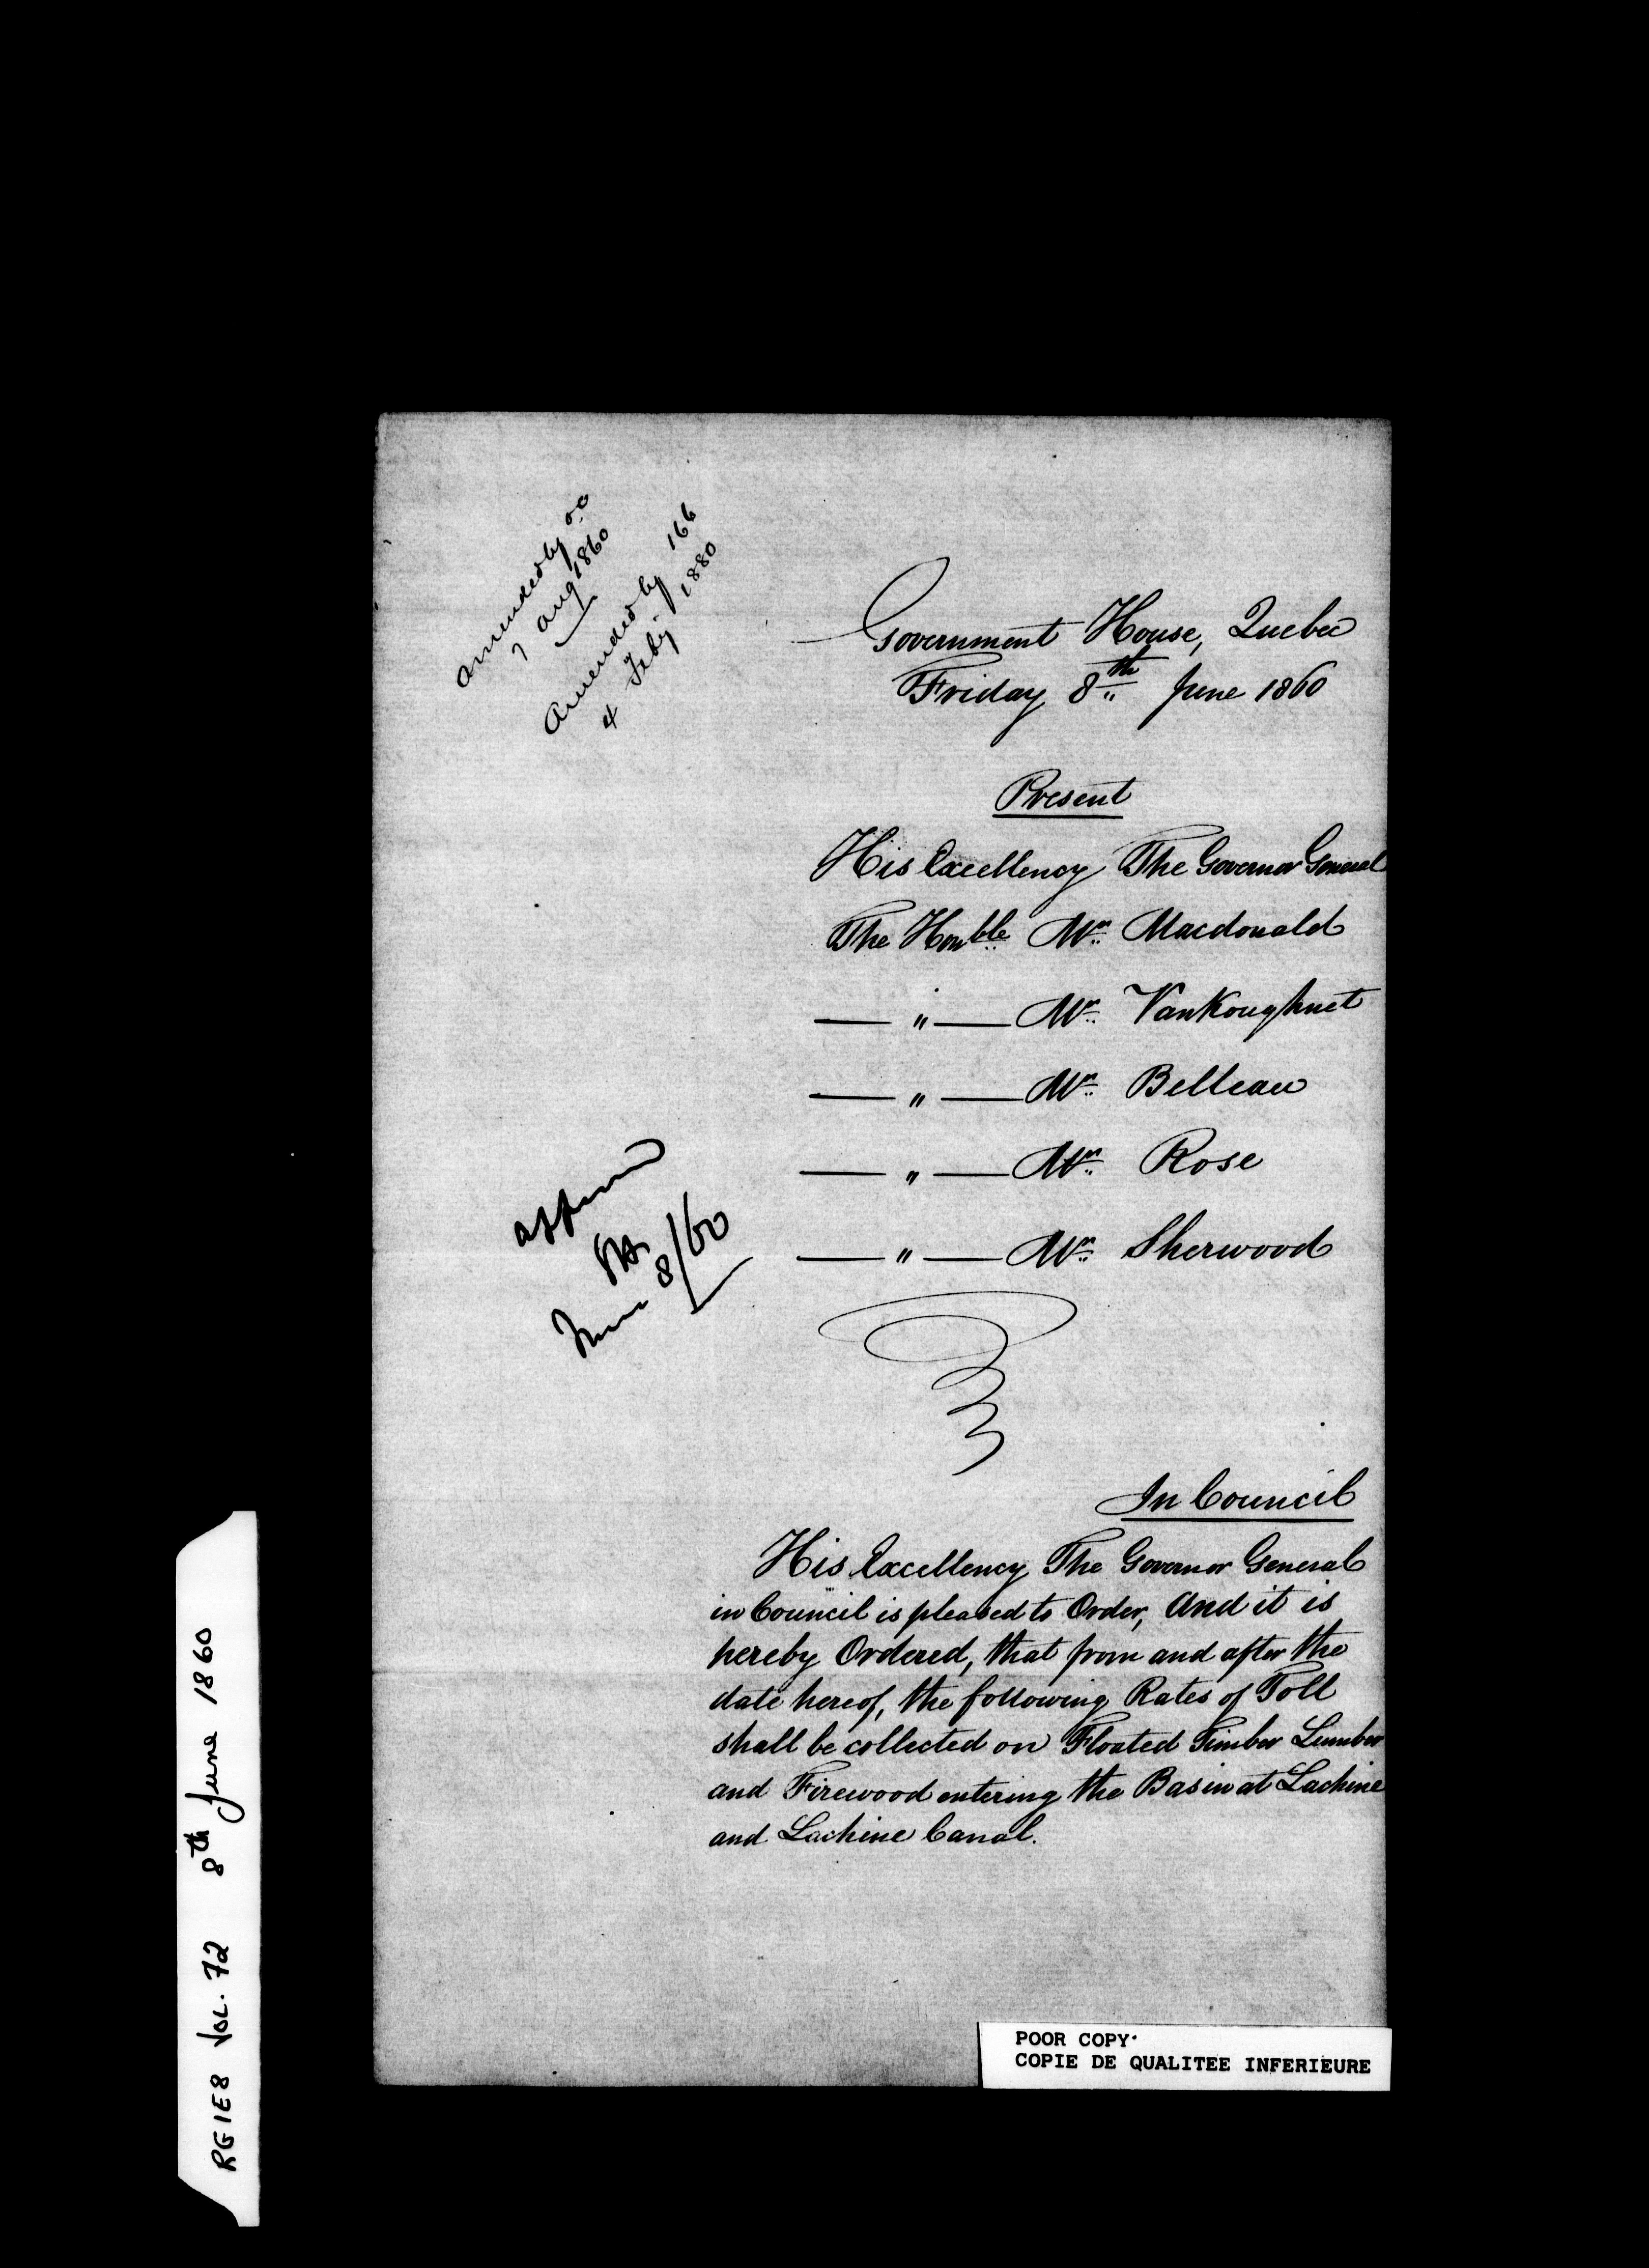 Amended by OC
7 Aug 1860
Amended by 166
4 Feby 1880
Government House, Quebec
Friday 8th June 1860
Present
His Excellency The Governor General
The Honble Mr. Macdonald
— " — Mr. VanKoughnet
— " — Mr. Belleau
— " — Mr. Rose
— " — Mr. Sherwood
Approved
June 8/60
In Council
His Excellency The Governor General
in Council is pleased to Order, And it is
hereby Ordered, that from and after the
date hereof, the following Rates of Toll
shall be collected on Floated Timber Lumber
and Firewood entering the Basin at Lachine
and Lachine Canal.
RG1E8 VOL. 72 8th June 1860
POOR COPY
COPIE DE QUALITEE INFERIEURE